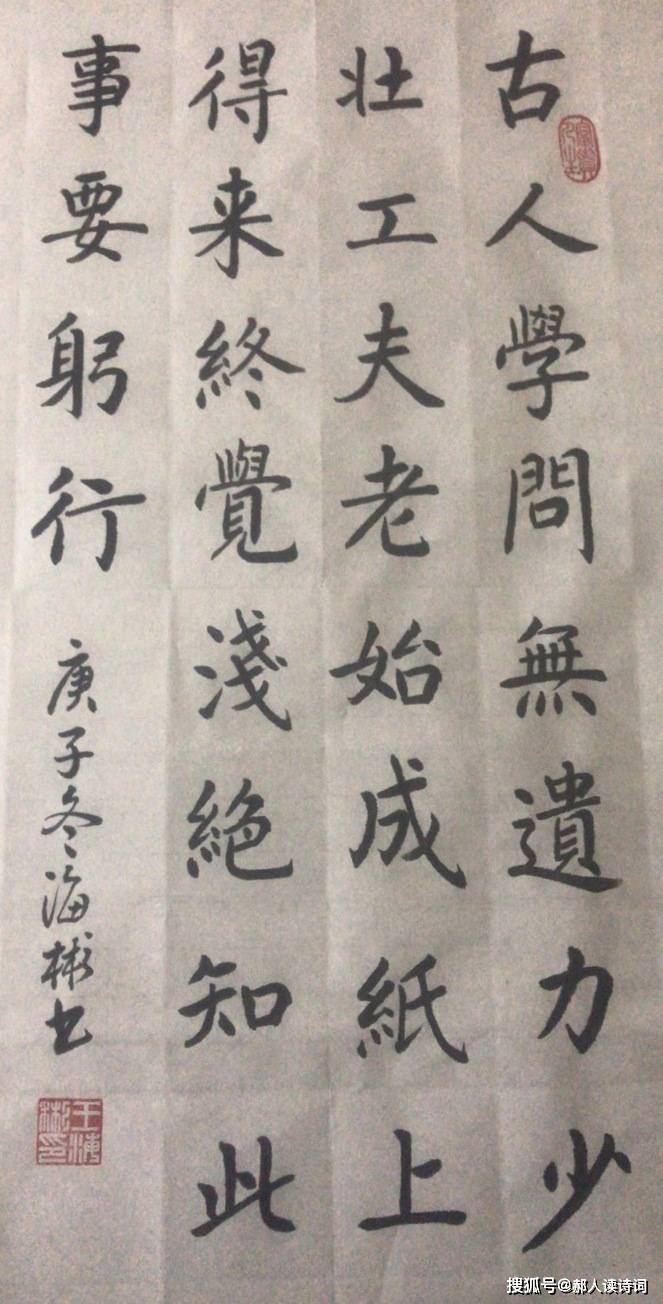 古人學問無遺力少
壮工夫老始成紙上
得来終覺淺絕知此
事要躬行
庚子冬海彬书
王海彬印
搜狐号@郝人读诗词